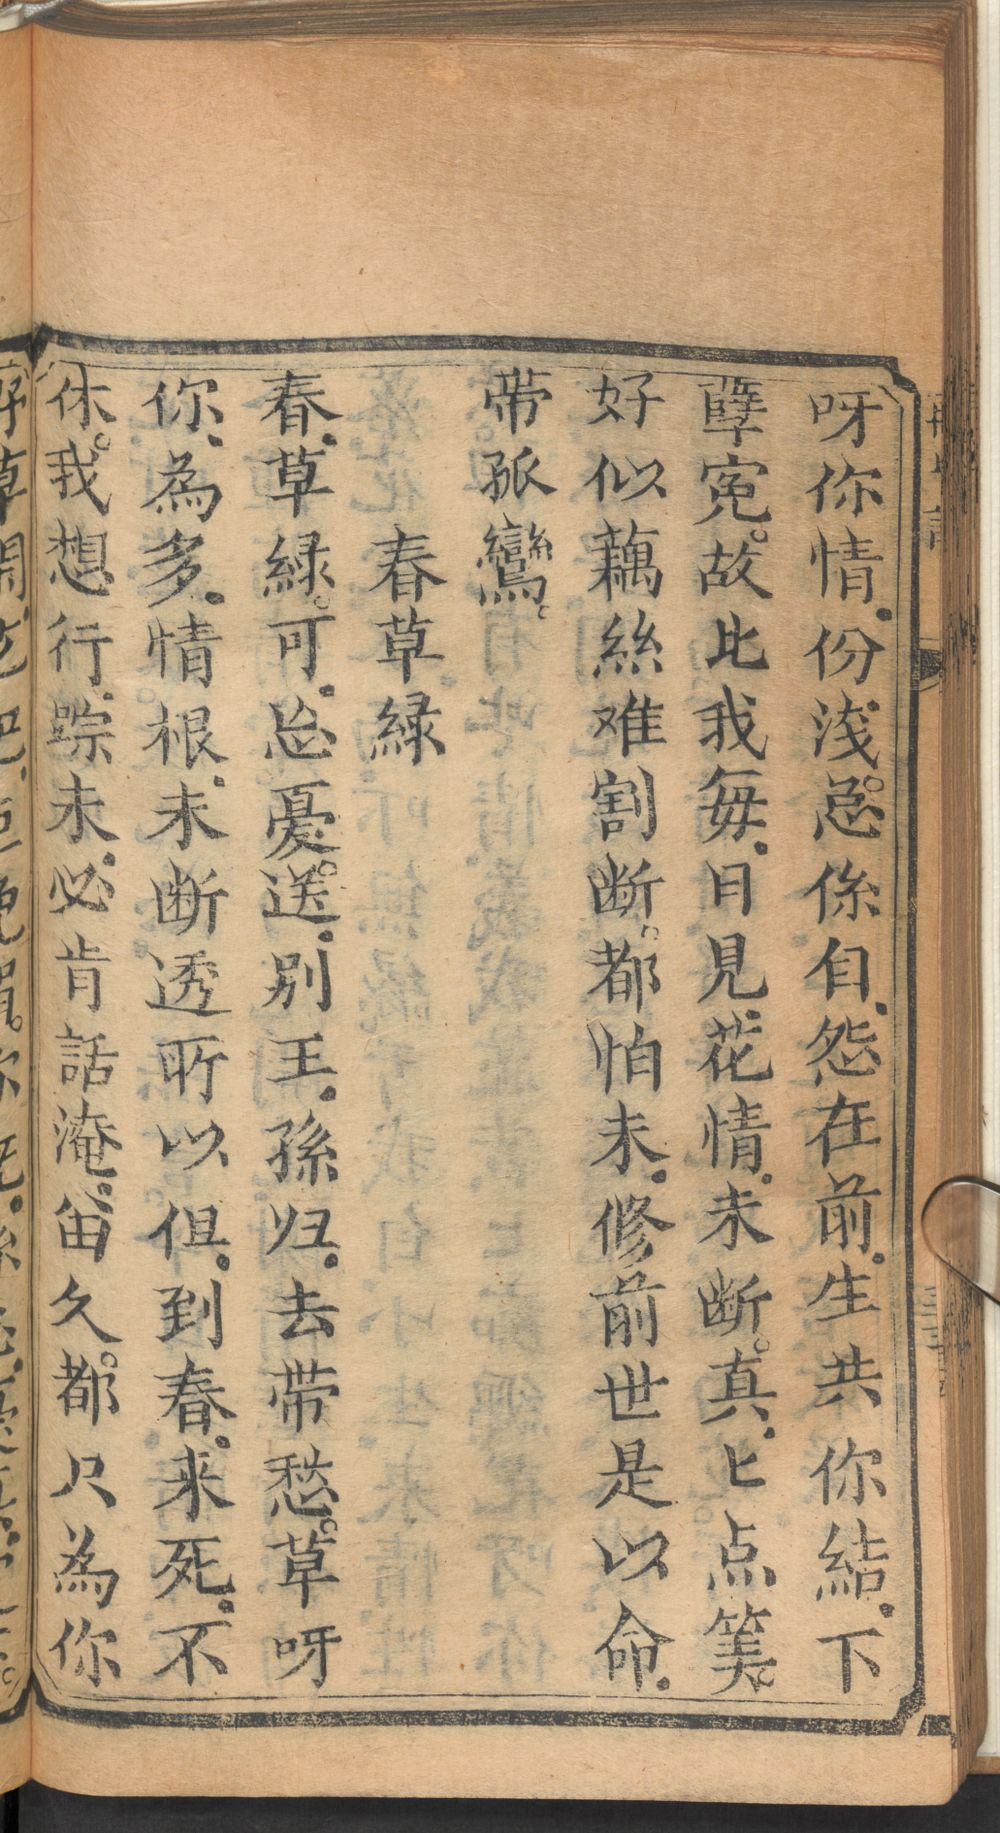 呀你情份浅。忌係自怨在前生共你結下
孽寃。故此我每日見花情未断。真匕点筭。
好似藕絲难割断。都怕未修前世是以命
带孤鸞。
春草緑
春草緑。可忘憂。送别王孫归去带愁。草呀
你為多情根未断透所以但到春来死不
休。我想行踪未必肯話淹留久。都只為你